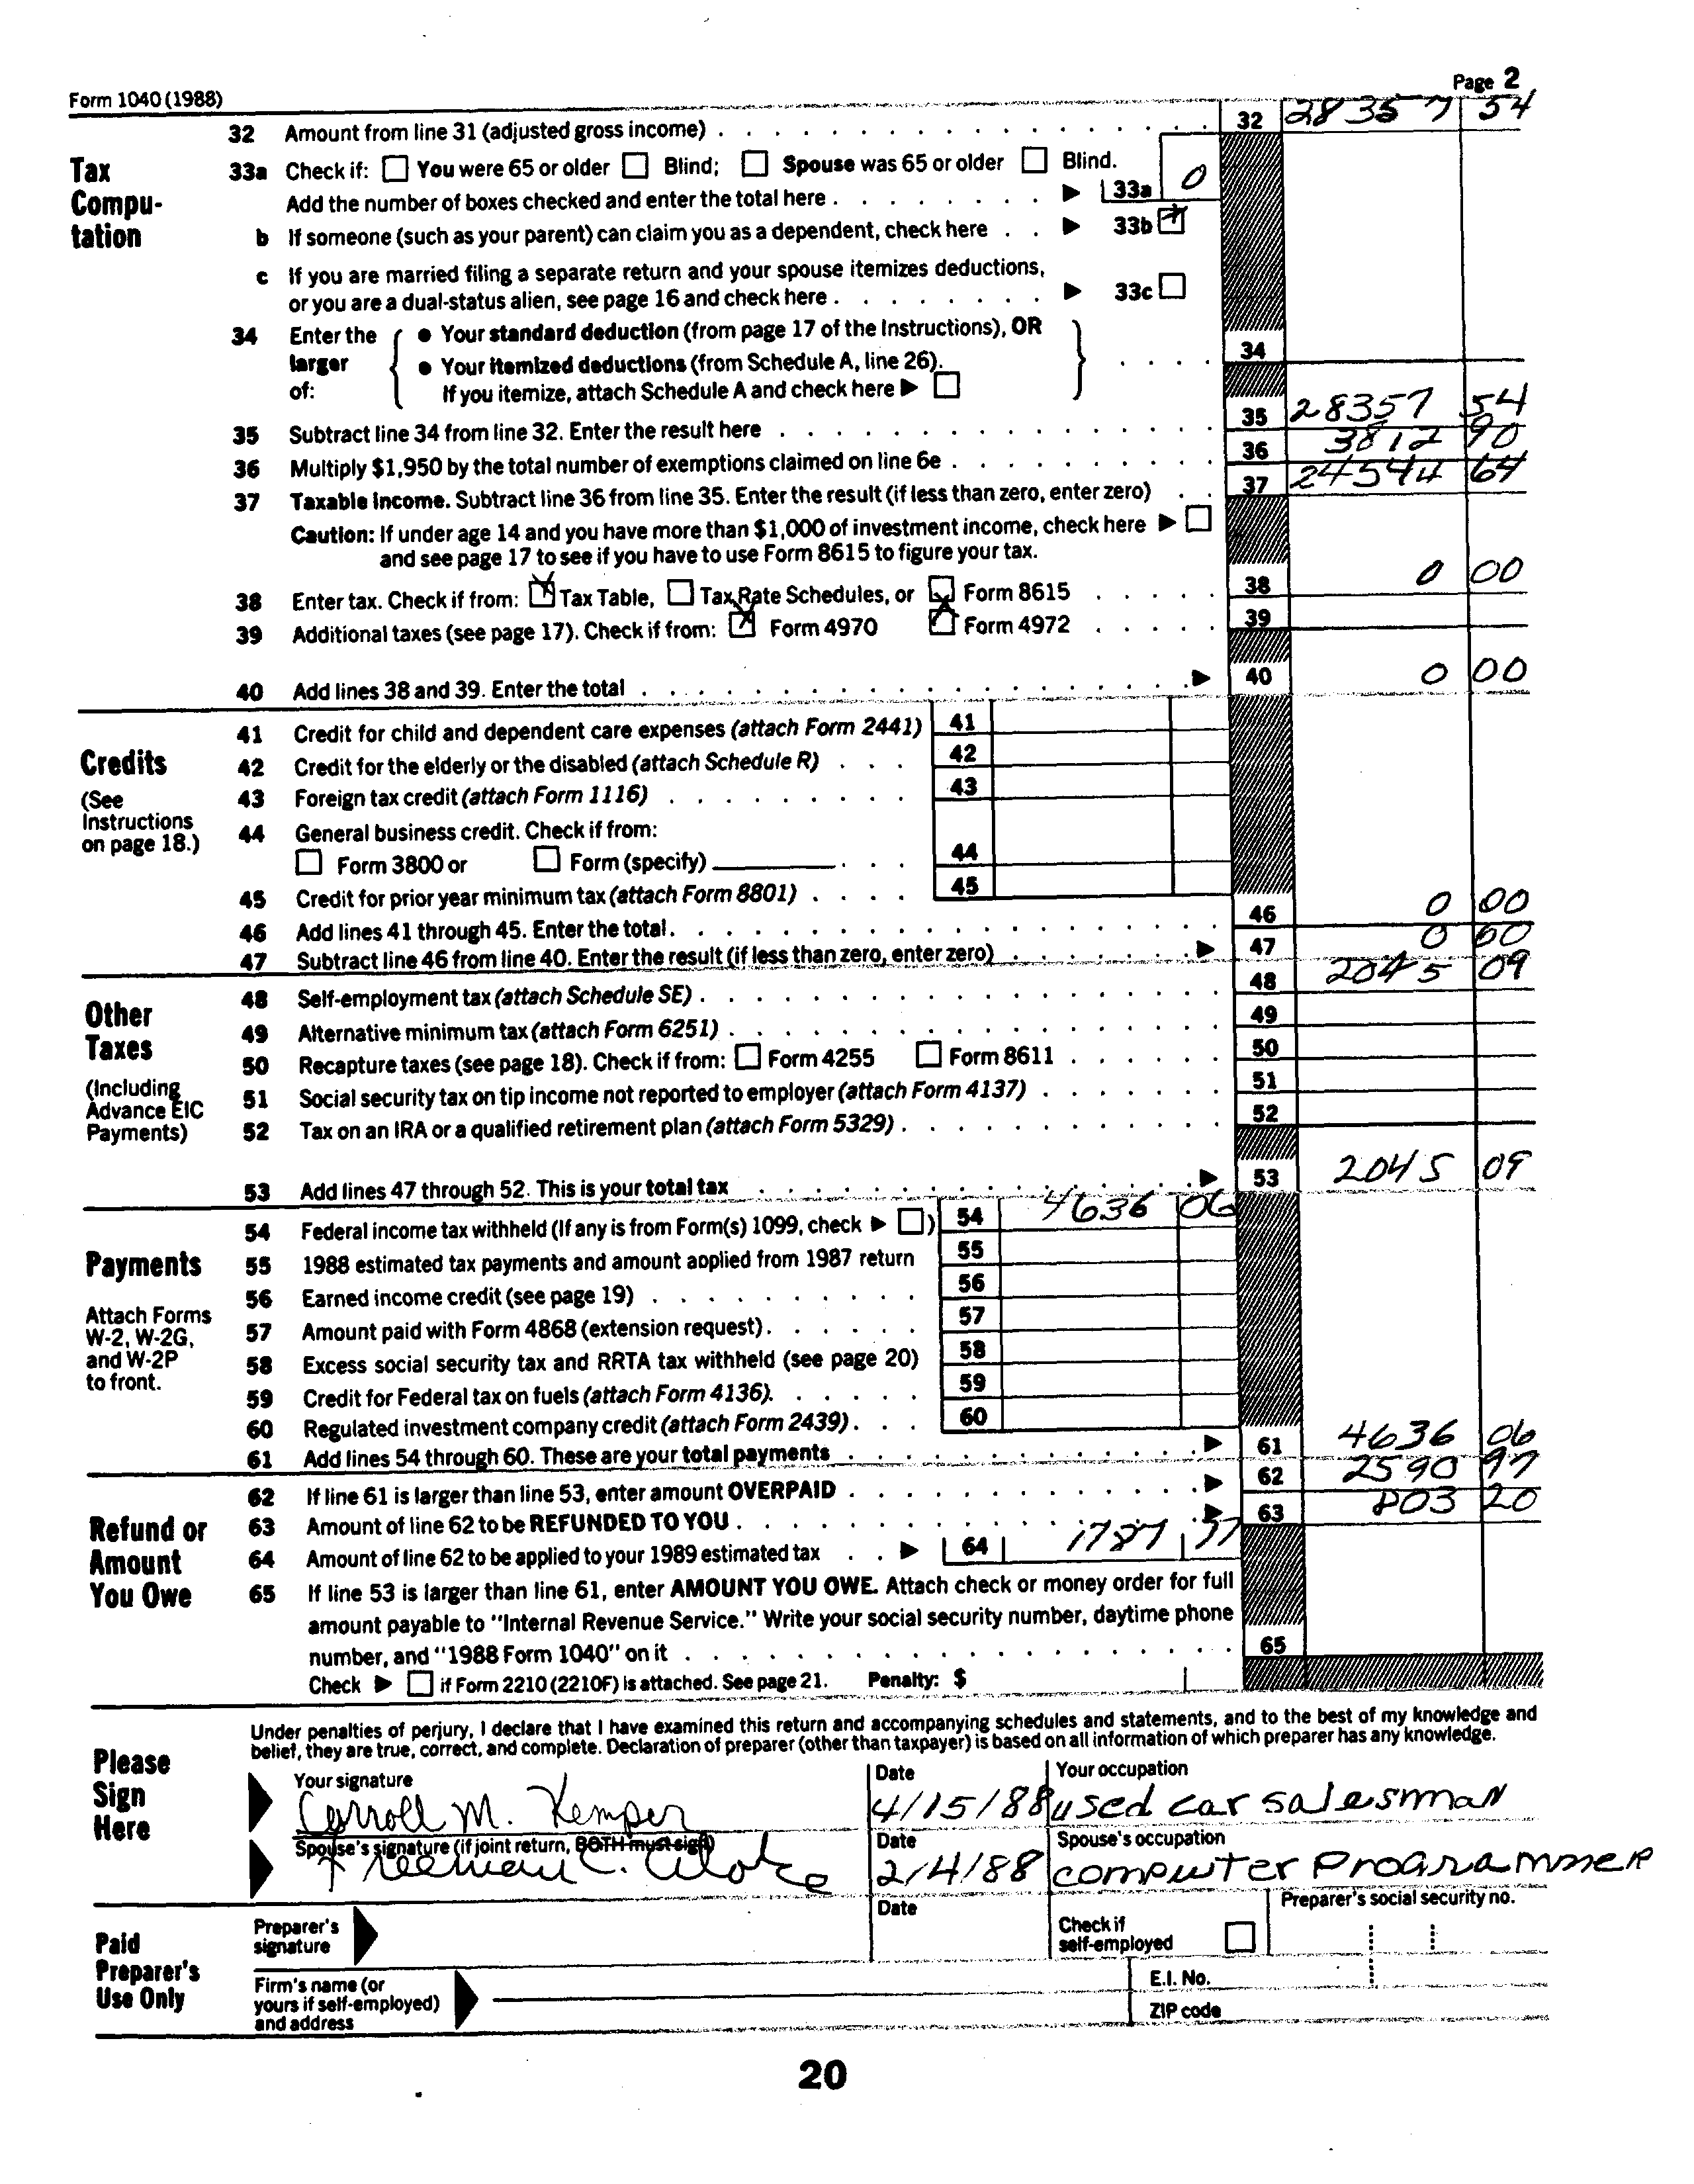 Form 1040 (1988) Page 2
32 Amount from line 31 (adjusted gross income) 32 28357 54
Tax Compu-tation
33a Check if: You were 65 or older Blind; Spouse was 65 or older Blind.
Add the number of boxes checked and enter the total here 33a 0
b If someone (such as your parent) can claim you as a dependent, check here 33b
c If you are married filing a separate return and your spouse itemizes deductions,
or you are a dual-status alien, see page 16 and check here 33c
34 Enter the larger of:
● Your standard deduction (from page 17 of the Instructions), OR
● Your itemized deductions (from Schedule A, line 26).
If you itemize, attach Schedule A and check here
34
35 Subtract line 34 from line 32. Enter the result here 35 28357 54
36 Multiply $1,950 by the total number of exemptions claimed on line 6e 36 3812 90
37 Taxable income. Subtract line 36 from line 35. Enter the result (if less than zero, enter zero) 37 24544 64
Caution: If under age 14 and you have more than $1,000 of investment income, check here
and see page 17 to see if you have to use Form 8615 to figure your tax.
38 Enter tax. Check if from: Tax Table, Tax Rate Schedules, or Form 8615 38 0 00
39 Additional taxes (see page 17). Check if from: Form 4970 Form 4972 39
40 Add lines 38 and 39. Enter the total 40 0 00
Credits
(See Instructions on page 18.)
41 Credit for child and dependent care expenses (attach Form 2441) 41
42 Credit for the elderly or the disabled (attach Schedule R) 42
43 Foreign tax credit (attach Form 1116) 43
44 General business credit. Check if from:
Form 3800 or Form (specify) 44
45 Credit for prior year minimum tax (attach Form 8801) 45
46 Add lines 41 through 45. Enter the total 46 0 00
47 Subtract line 46 from line 40. Enter the result (if less than zero, enter zero) 47 0 00
Other Taxes
(Including Advance EIC Payments)
48 Self-employment tax (attach Schedule SE) 48 2045 09
49 Alternative minimum tax (attach Form 6251) 49
50 Recapture taxes (see page 18). Check if from: Form 4255 Form 8611 50
51 Social security tax on tip income not reported to employer (attach Form 4137) 51
52 Tax on an IRA or a qualified retirement plan (attach Form 5329) 52
53 Add lines 47 through 52. This is your total tax 53 2045 09
Payments
Attach Forms W-2, W-2G, and W-2P to front.
54 Federal income tax withheld (If any is from Form(s) 1099, check ) 54 4636 06
55 1988 estimated tax payments and amount applied from 1987 return 55
56 Earned income credit (see page 19) 56
57 Amount paid with Form 4868 (extension request) 57
58 Excess social security tax and RRTA tax withheld (see page 20) 58
59 Credit for Federal tax on fuels (attach Form 4136) 59
60 Regulated investment company credit (attach Form 2439) 60
61 Add lines 54 through 60. These are your total payments 61 4636 06
Refund or Amount You Owe
62 If line 61 is larger than line 53, enter amount OVERPAID 62 2590 97
63 Amount of line 62 to be REFUNDED TO YOU 63 803 20
64 Amount of line 62 to be applied to your 1989 estimated tax 64 1787
65 If line 53 is larger than line 61, enter AMOUNT YOU OWE. Attach check or money order for full
amount payable to "Internal Revenue Service." Write your social security number, daytime phone
number, and "1988 Form 1040" on it 65
Check if Form 2210 (2210F) is attached. See page 21. Penalty: $
Please Sign Here
Under penalties of perjury, I declare that I have examined this return and accompanying schedules and statements, and to the best of my knowledge and
belief, they are true, correct, and complete. Declaration of preparer (other than taxpayer) is based on all information of which preparer has any knowledge.
Your signature Date Your occupation
Carroll M. Kemper 4/15/88 used car salesman
Spouse's signature (if joint return, BOTH must sign) Date Spouse's occupation
Freeman C. 2/4/88 computer Programmer
Paid Preparer's Use Only
Preparer's signature Date Check if self-employed Preparer's social security no.
Firm's name (or yours if self-employed) and address E.I. No.
ZIP code
20